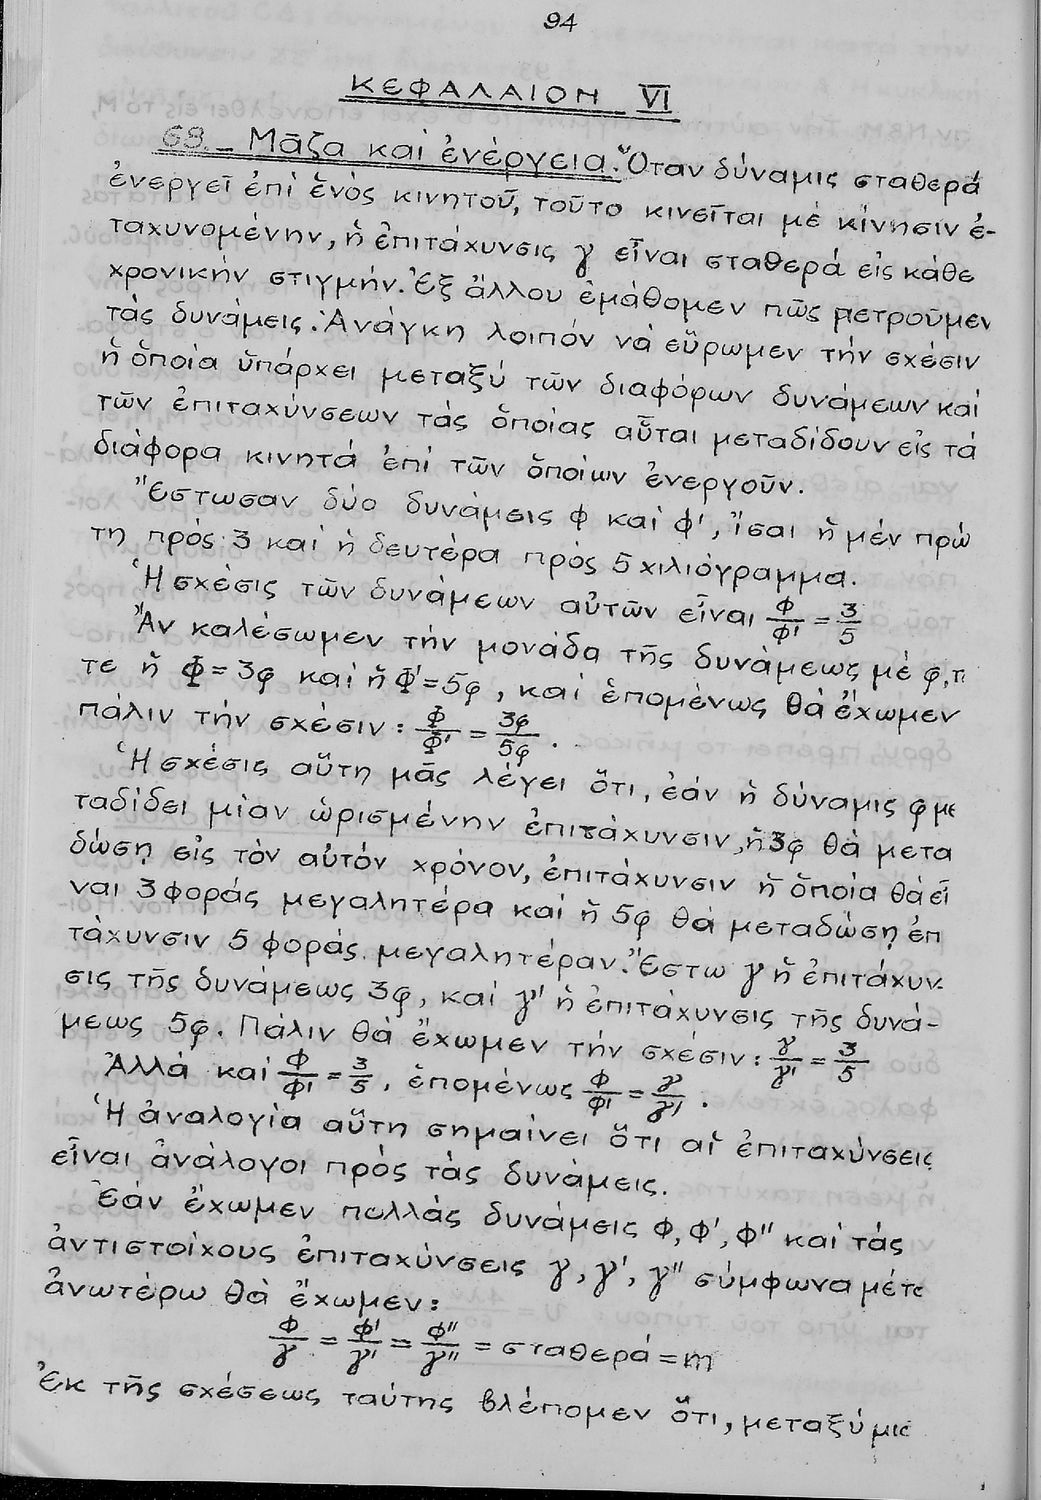 94
ΚΕΦΑΛΑΙΟΝ VI
68.- Μᾶζα καί ἐνέργεια. Ὅταν δύναμις σταθερά
ἐνεργεῖ ἐπί ἑνός κινητοῦ, τοῦτο κινεῖται μέ κίνησιν ἐ-
ταχυνομένην, ἡ ἐπιτάχυνσις γ εἶναι σταθερά εἰς κάθε
χρονικήν στιγμήν. Ἐξ ἄλλου ἐμάθομεν πῶς μετροῦμεν
τάς δυνάμεις. Ἀνάγκη λοιπόν νά εὕρωμεν τήν σχέσιν
ἡ ὁποία ὑπάρχει μεταξύ τῶν διαφόρων δυνάμεων καί
τῶν ἐπιταχύνσεων τάς ὁποίας αὗται μεταδίδουν εἰς τά
διάφορα κινητά ἐπί τῶν ὁποίων ἐνεργοῦν.
Ἔστωσαν δύο δυνάμεις Φ καί Φ', ἴσαι ἡ μέν πρώ
τη πρός 3 καί ἡ δευτέρα πρός 5 χιλιόγραμμα.
Ἡ σχέσις τῶν δυνάμεων αὐτῶν εἶναι Φ/Φ' = 3/5
Ἄν καλέσωμεν τήν μονάδα τῆς δυνάμεως μέ φ, τ
τε ἡ Φ = 3φ καί ἡ Φ' = 5φ, καί ἑπομένως θά ἔχωμεν
πάλιν τήν σχέσιν: Φ/Φ' = 3φ/5φ.
Ἡ σχέσις αὕτη μᾶς λέγει ὅτι, ἐάν ἡ δύναμις φ με
ταδίδει μίαν ὡρισμένην ἐπιτάχυνσιν, ἡ 3φ θά μετα
δώσῃ εἰς τὸν αὐτόν χρόνον, ἐπιτάχυνσιν ἡ ὁποία θά εἶ
ναι 3 φοράς μεγαλητέρα καί ἡ 5φ θά μεταδώσῃ ἐπ
τάχυνσιν 5 φοράς μεγαλητέραν. Ἔστω γ ἡ ἐπιτάχυν-
σις τῆς δυνάμεως 3φ, καί γ' ἡ ἐπιτάχυνσις τῆς δυνά-
μεως 5φ. Πάλιν θά ἔχωμεν τήν σχέσιν: γ/γ' = 3/5
Ἀλλά καί Φ/Φ' = 3/5, ἑπομένως Φ/Φ' = γ/γ'.
Ἡ ἀναλογία αὕτη σημαίνει ὅτι αἱ ἐπιταχύνσεις
εἶναι ἀνάλογοι πρός τάς δυνάμεις.
Ἐάν ἔχωμεν πολλάς δυνάμεις Φ, Φ', Φ'' καί τάς
ἀντιστοίχους ἐπιταχύνσεις γ, γ', γ'' σύμφωνα μέ τά
ἀνωτέρω θά ἔχωμεν:
Φ/γ = Φ'/γ' = Φ''/γ'' = σταθερά = m
Ἐκ τῆς σχέσεως ταύτης βλέπομεν ὅτι, μεταξύ μιᾶ